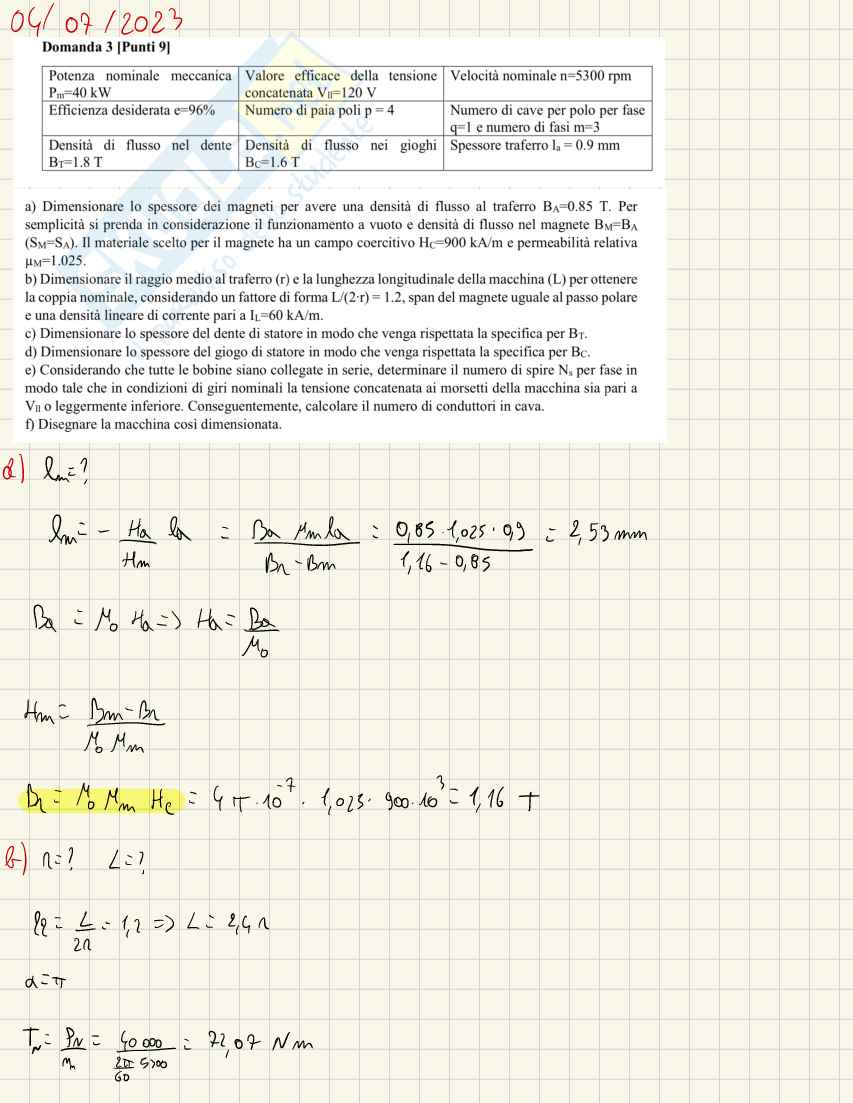 04/07/2023
Domanda 3 [Punti 9]
Potenza nominale meccanica Pm=40 kW
Valore efficace della tensione concatenata Vll=120 V
Velocità nominale n=5300 rpm
Efficienza desiderata e=96%
Numero di paia poli p = 4
Numero di cave per polo per fase q=1 e numero di fasi m=3
Densità di flusso nel dente BT=1.8 T
Densità di flusso nei gioghi BC=1.6 T
Spessore traferro la = 0.9 mm
a) Dimensionare lo spessore dei magneti per avere una densità di flusso al traferro BA=0.85 T. Per
semplicità si prenda in considerazione il funzionamento a vuoto e densità di flusso nel magnete BM=BA
(SM=SA). Il materiale scelto per il magnete ha un campo coercitivo HC=900 kA/m e permeabilità relativa
μM=1.025.
b) Dimensionare il raggio medio al traferro (r) e la lunghezza longitudinale della macchina (L) per ottenere
la coppia nominale, considerando un fattore di forma L/(2·r) = 1.2, span del magnete uguale al passo polare
e una densità lineare di corrente pari a IL=60 kA/m.
c) Dimensionare lo spessore del dente di statore in modo che venga rispettata la specifica per BT.
d) Dimensionare lo spessore del giogo di statore in modo che venga rispettata la specifica per BC.
e) Considerando che tutte le bobine siano collegate in serie, determinare il numero di spire Ns per fase in
modo tale che in condizioni di giri nominali la tensione concatenata ai morsetti della macchina sia pari a
Vll o leggermente inferiore. Conseguentemente, calcolare il numero di conduttori in cava.
f) Disegnare la macchina così dimensionata.
a) lm=?
lm = - Ha/Hm la = Ba μm la / (Br - Bm) = 0,85 · 1,025 · 0,9 / (1,16 - 0,85) = 2,53 mm
Ba = μ0 Ha => Ha = Ba/μ0
Hm = (Bm - Br) / (μ0 μm)
Br = μ0 μm Hc = 4π · 10^-7 · 1,025 · 900 · 10^3 = 1,16 T
b) r=? L=?
= L/2r = 1,2 => L = 2,4 r
α=π
TN = PN / = 40 000 / (2π/60 5300) = 72,07 Nm